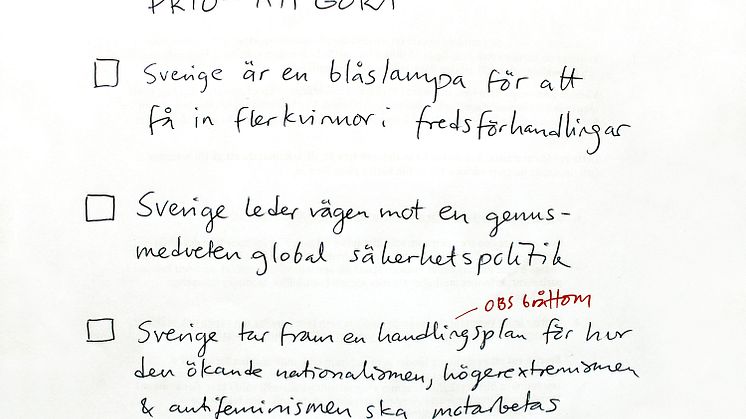 PRIO - ATT GÖRA
Sverige är en blåslampa för att
få in fler kvinnor i fredsförhandlingar
Sverige leder vägen mot en genus-
medveten global säkerhetspolitik
OBS bråttom
Sverige tar fram en handlingsplan för hur
den ökande nationalismen, högerextremismen
& antifeminismen ska motarbetas